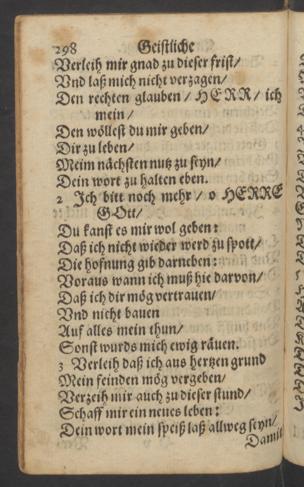 298 Geistliche
Verleih mir gnad zu dieser frist/
Vnd laß mich nicht verzagen/
Den rechten glauben / HERR / ich
mein /
Den wöllest du mir geben/
Dir zu leben/
Meim nächsten nutz zu seyn/
Dein wort zu halten eben.
2 Ich bitt noch mehr / o HERRE
GOtt/
Du kanst es mir wol geben:
Daß ich nicht wieder werd zu spott/
Die hofnung gib darneben:
Voraus wann ich muß hie darvon/
Daß ich dir mög vertrauen/
Vnd nicht bauen
Auf alles mein thun/
Sonst wurds mich ewig räuen.
3 Verleih daß ich aus hertzen grund
Mein feinden mög vergeben/
Verzeih mir auch zu dieser stund/
Schaff mir ein neues leben:
Dein wort mein speiß laß allweg seyn/
Damit